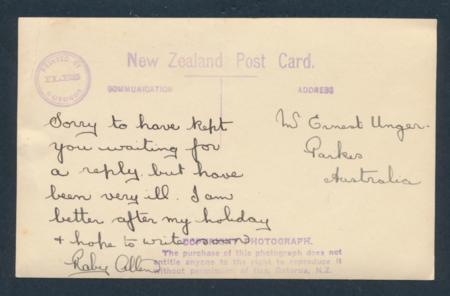 New Zealand Post Card.
COMMUNICATION
ADDRESS
Sorry to have kept
you waiting for
a reply but have
been very ill. I am
better after my holiday
& hope to write soon
Allen
W Ernest Unger.
Parkes
Australia
COPYRIGHT PHOTOGRAPH.
The purchase of this photograph does not
entitle anyone to the right to reproduce it
without permission of Iles, Rotorua, N.Z.